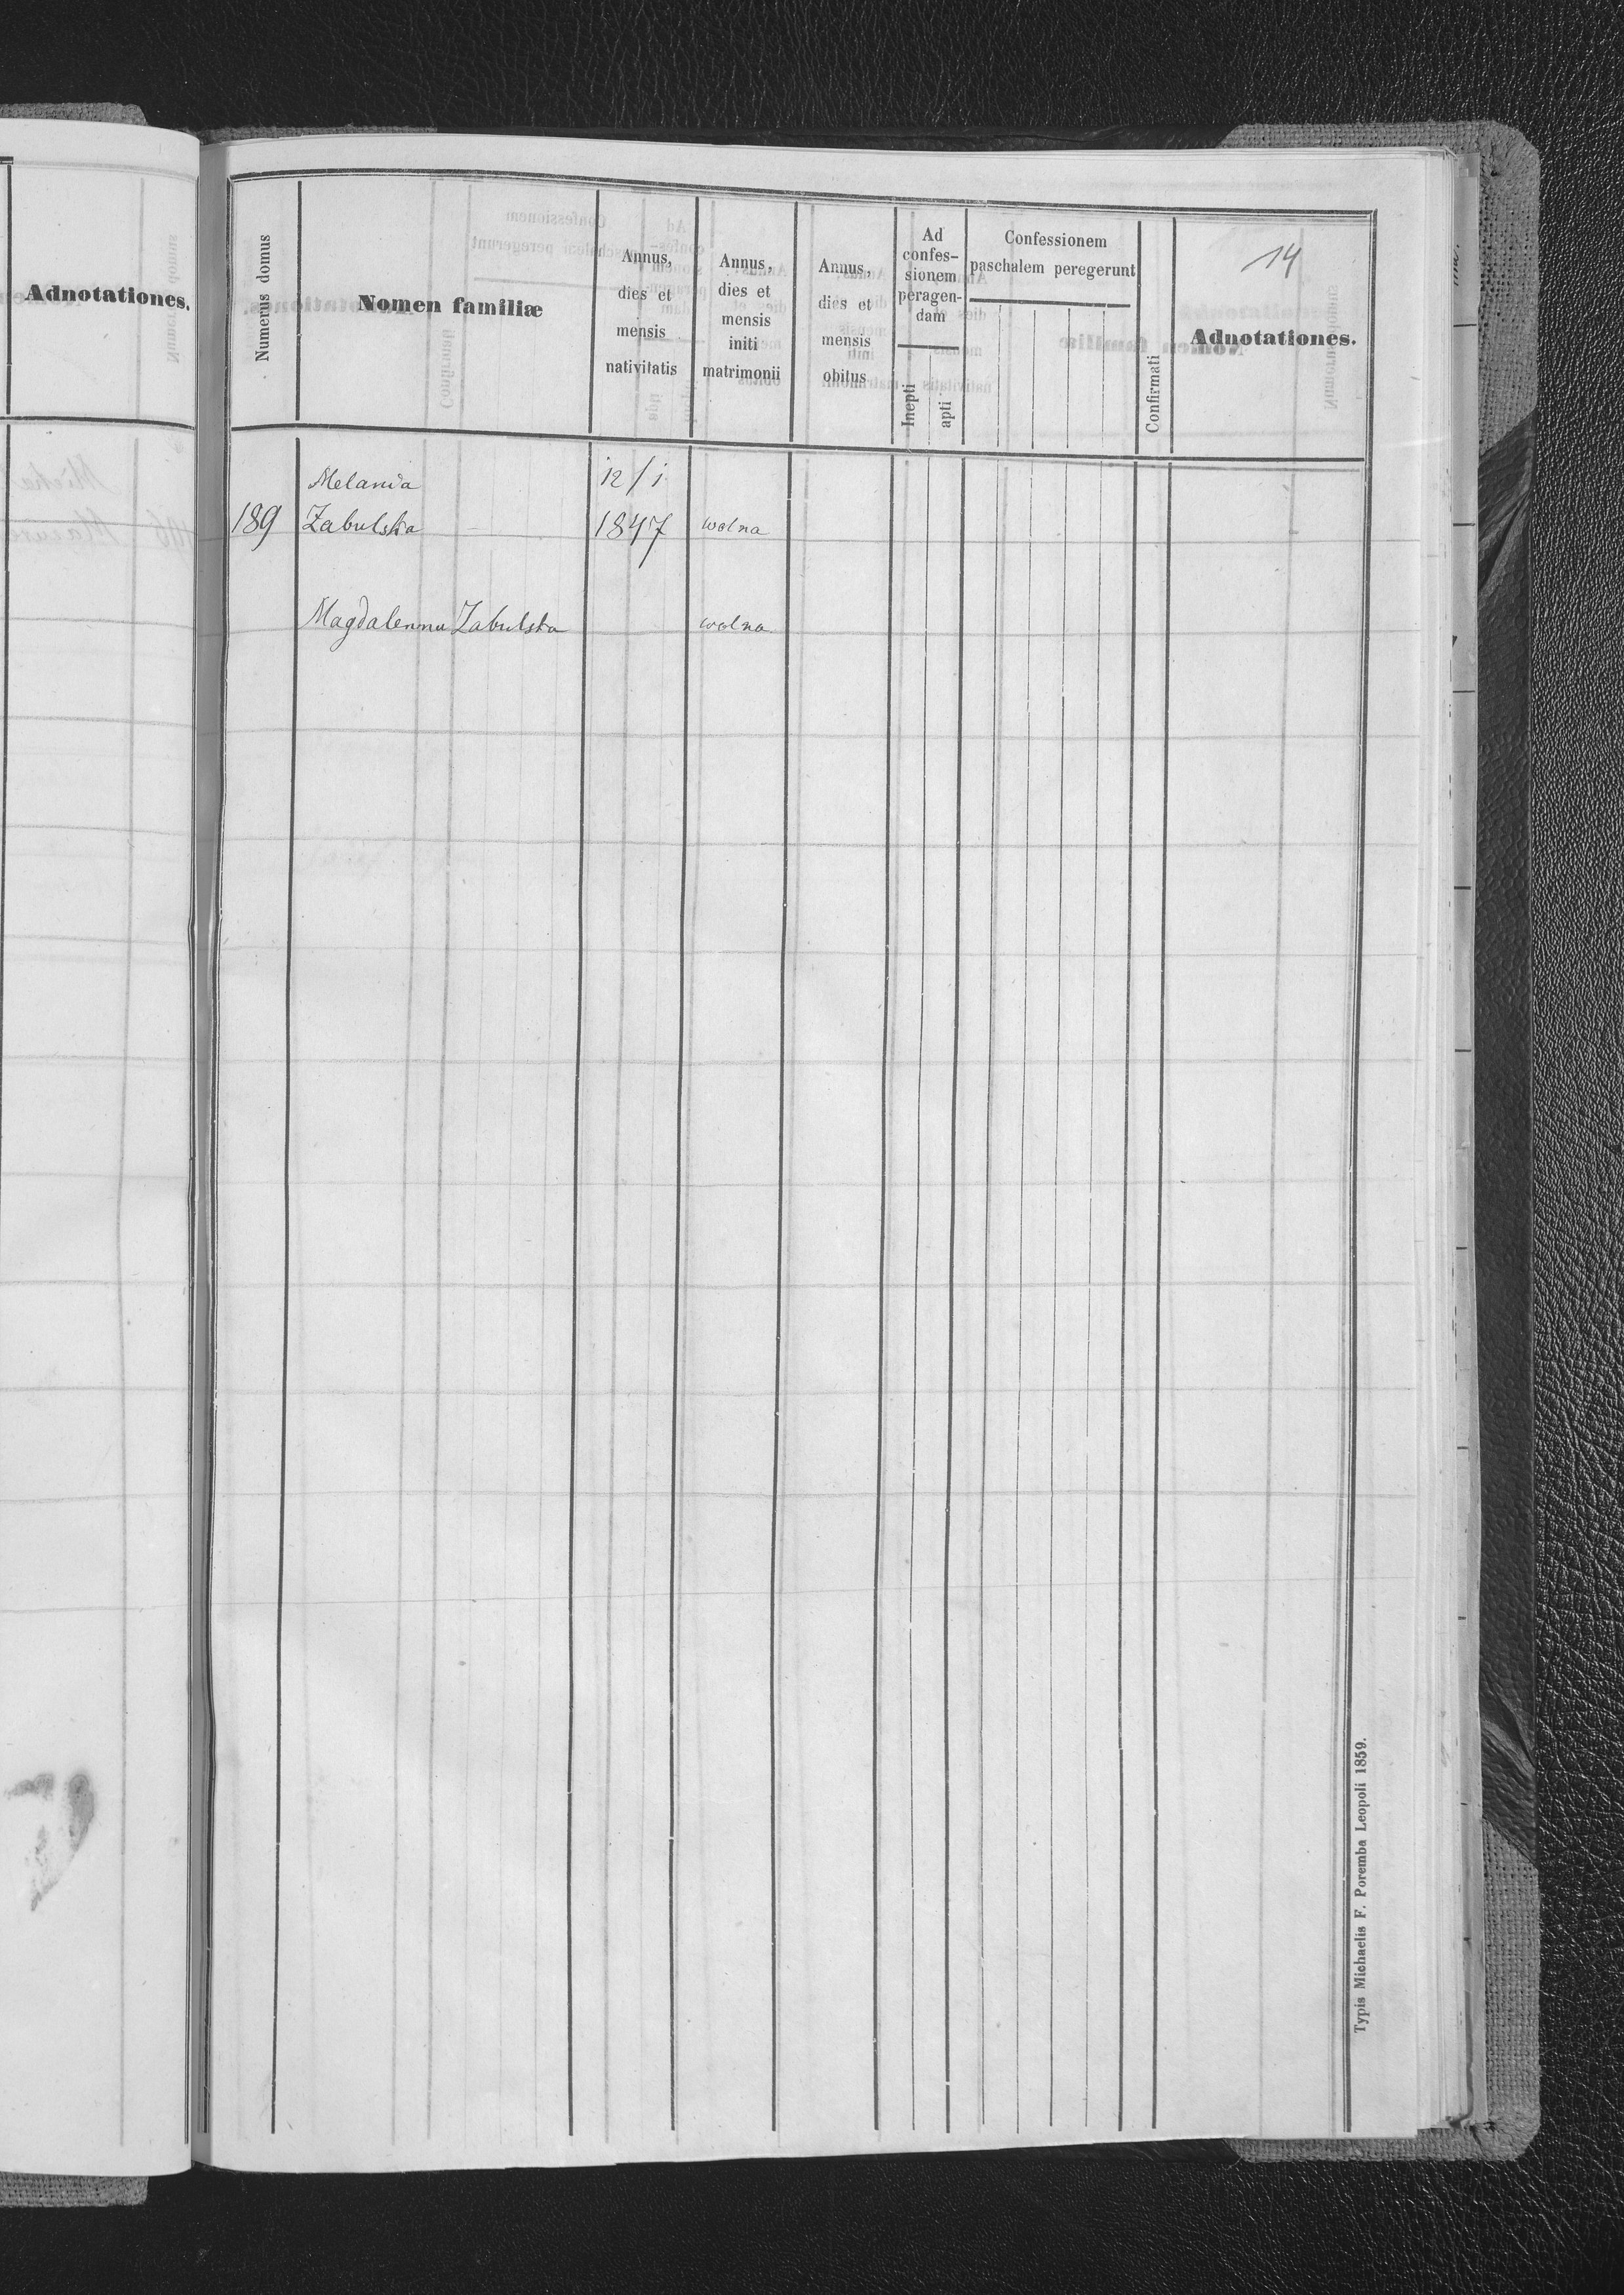 Adnotationes.
14
Numerus domus
Nomen familiæ
Annus,
dies et
mensis
nativitatis
Annus,
dies et
mensis
initi
matrimonii
Annus,
dies et
mensis
obitus
Ad
confes-
sionem
peragen-
dam
Inepti
apti
Confessionem
paschalem peregerunt
Confirmati
Adnotationes.
Melania 12/1
189 Zabulska 1847 wolna
Magdalenna Zabulska wolna
Typis Michaelis F. Poremba Leopoli 1859.